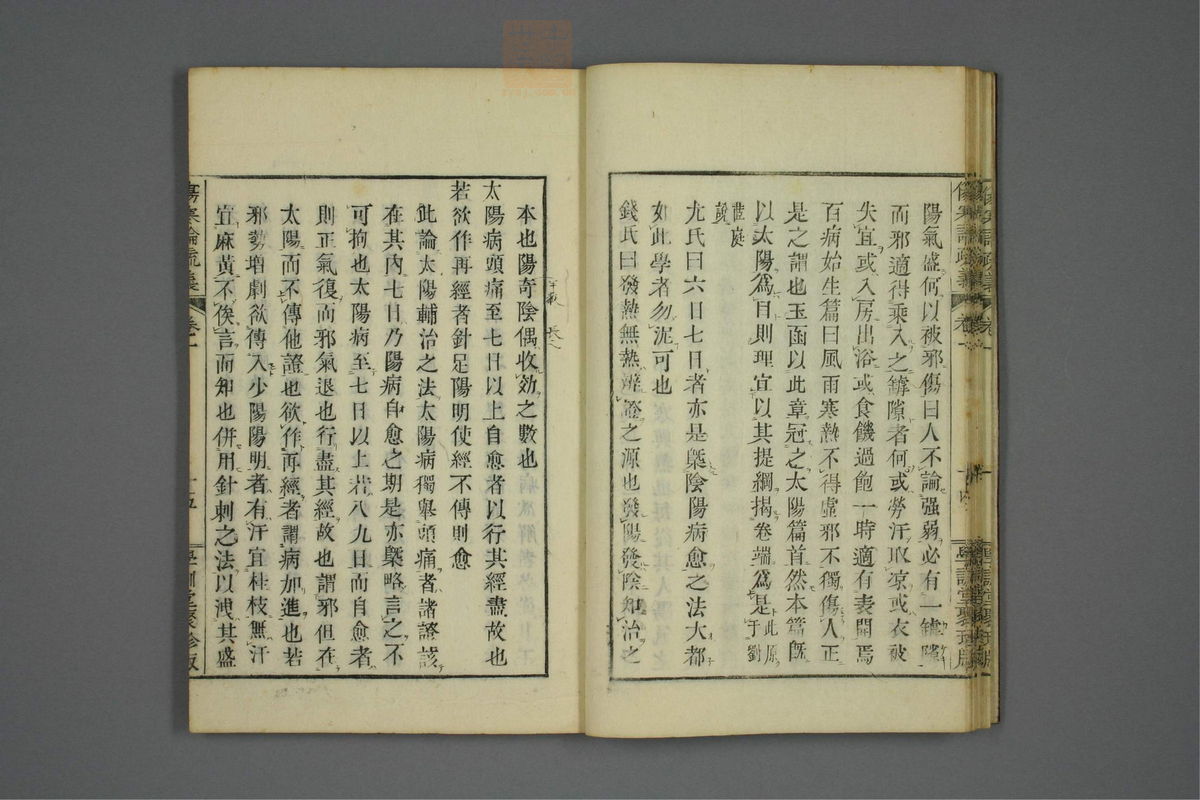 陽氣盛何以被邪傷曰人不論强弱必有一罅隙
而邪適得乘入之罅隙者何或勞汗取凉或衣被
失宜或入房出浴或食饑過飽一時適有表開焉
百病始生篇曰風雨寒熱不得虛邪不獨傷人正
是之謂也玉函以此章冠之太陽篇首然本篇旣
以太陽爲目則理宜以其提綱揭卷端爲是此原于劉
茝庭
說
尤氏曰六日七日者亦是槩陰陽病愈之法大都
如此學者勿泥可也
錢氏曰發熱無熱辨證之源也發陽發陰知治之
本也陽奇陰偶收効之數也
太陽病頭痛至七日以上自愈者以行其經盡故也
若欲作再經者針足陽明使經不傳則愈
此論太陽輔治之法太陽病獨擧頭痛者諸證該
在其內七日乃陽病自愈之期是亦槩略言之不
可拘也太陽病至七日以上若八九日而自愈者
則正氣復而邪氣退也行盡其經故也謂邪但在
太陽而不傳他證也欲作再經者謂病加進也若
邪勢增劇欲傳入少陽陽明者有汗宜桂枝無汗
宜麻黃不俟言而知也併用針刺之法以洩其盛
傷寒論疏義
卷一